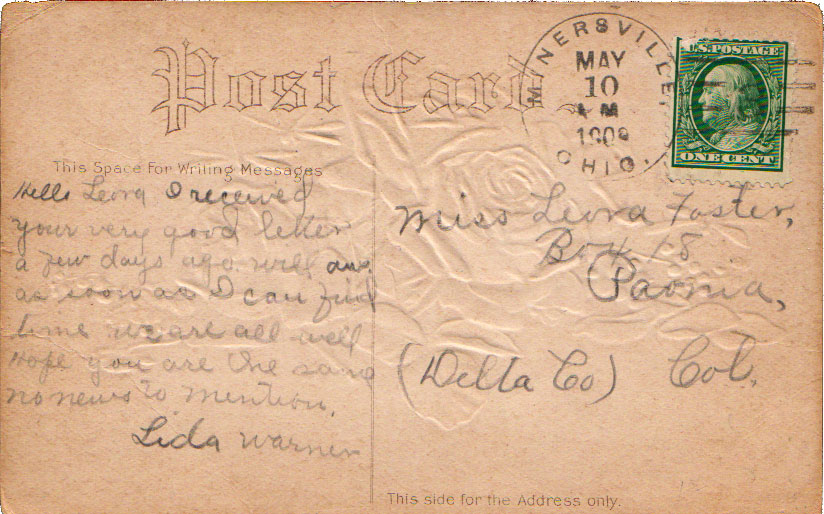 Post Card
MINERSVILLE
MAY
10
A M
1909
OHIO.
U.S. POSTAGE
ONE CENT
This Space For Writing Messages
Hello Leora I received
your very good letter
a few days ago. will ans.
as soon as I can find
time we are all well
Hope you are the same
no news to mention.
Lida Warner
Miss Leora Foster,
Box 18
Paonia,
(Delta Co) Col.
This side for the Address only.